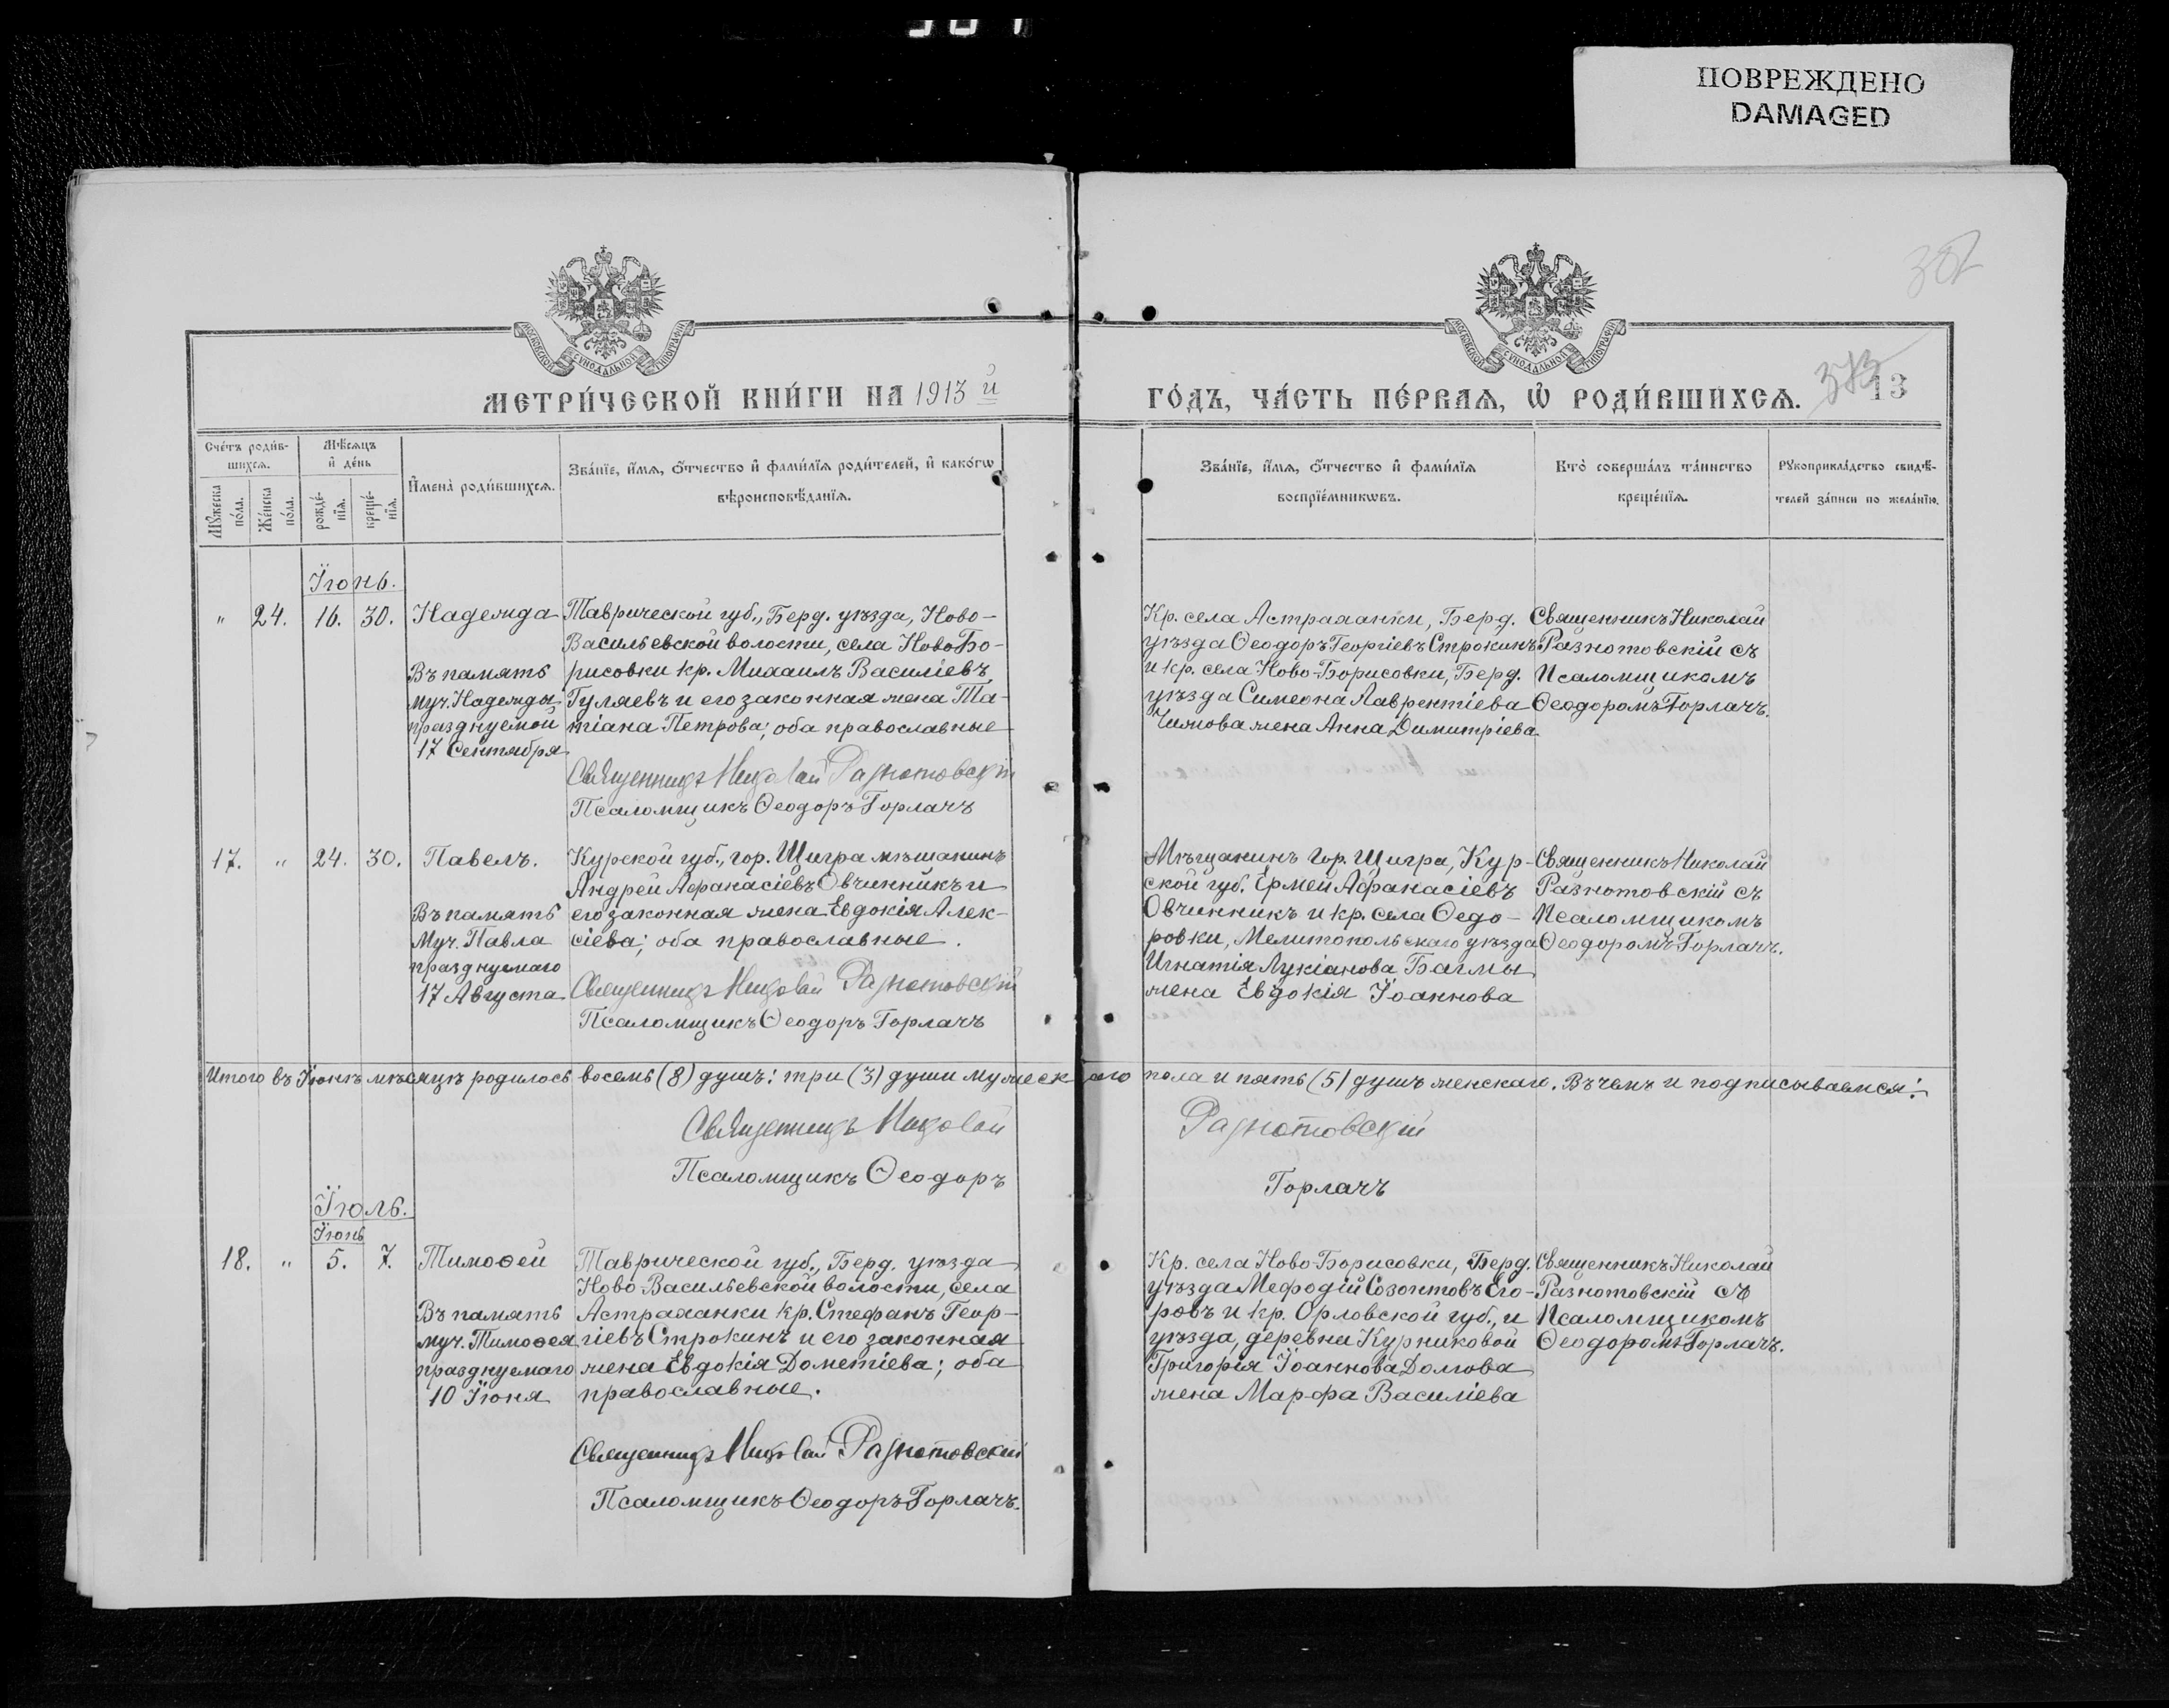 ПОВРЕЖДЕНО
DAMAGED
МОСКОВСКОЙ СУНОДАЛЬНОЙ ТИПОГРАФІИ
МОСКОВСКОЙ СУНОДАЛЬНОЙ ТИПОГРАФІИ
382
373
13
МЕТРИ́ЧЕСКОЙ КНИ́ГИ НА 1913 й
ГО́ДЪ, ЧА́СТЬ ПЕ́РВАѦ, Ѡ҆ РОДИ́ВШИХСѦ.
Сче́тъ роди́в-
шихсѧ.
Мѣ́сѧцъ
и҆ де́нь
Мꙋ́жеска
по́ла.
Же́нска
по́ла.
рожде́-
нїѧ.
креще́-
нїѧ.
И҆мена̀ роди́вшихсѧ.
Зва́нїе, и҆́мѧ, ѻ҆́тчество и҆ фамѝлїѧ роди́телей, и҆ како́гѡ
вѣроисповѣ́данїѧ.
Зва́нїе, и҆́мѧ, ѻ҆́тчество и҆ фамѝлїѧ
воспрїе́мникѡвъ.
Кто̀ соверша́лъ та́инство
креще́нїѧ.
Рꙋкоприкла́дство свидѣ́-
телей за́писи по жела́нїю.
Їюнь.
" 24. 16. 30. Надежда
Въ память
муч. Надежды
празднуемой
17 Сентября
Таврической губ., Берд. уѣзда, Ново-
Васильевской волости, села НовоБо-
рисовки кр. Михаилъ Василіевъ
Гуляевъ и его законная жена Та-
тіана Петрова; оба православные
Священникъ Николай Разнотовскій
Псаломщикъ Ѳеодоръ Горлачъ
Кр. села Астраханки, Берд.
уѣзда Ѳеодоръ Георгіевъ Строкинъ
и кр. села Ново-Борисовки, Берд.
уѣзда Симеона Лаврентіева
жена Анна Димитріева
Священникъ Николай
Разнотовскій съ
Псаломщикомъ
Ѳеодоромъ Горлачъ.
17. " 24. 30. Павелъ.
Въ память
Муч. Павла
празднуемаго
17 Августа
Курской губ., гор. Щигра мѣщанинъ
Андрей Афанасіевъ Овчинникъ и
его законная жена Евдокія Алек-
сіева; оба православные.
Священникъ Николай Разнотовскій
Псаломщикъ Ѳеодоръ Горлачъ
Мѣщанинъ гор. Щигра, Кур-
ской губ. Ермей Афанасіевъ
Овчинникъ и кр. села Ѳедо-
ровки, Мелитопольскаго уѣзда
Игнатія Лукіанова Багмы
жена Евдокія Їоаннова
Священникъ Николай
Разнотовскій съ
Псаломщикомъ
Ѳеодоромъ Горлачъ.
Итого въ Їюнѣ мѣсяцѣ родилось восемь (8) душъ: три (3) души мужескаго пола и пять (5) душъ женскаго. Въ чемъ и подписываемся:
Священникъ Николай Разнотовскій
Псаломщикъ Ѳеодоръ Горлачъ
Їюль.
Їюнь
18. " 5. 7. Тимоѳей
Въ память
муч. Тимоѳея
празднуемаго
10 Їюня
Таврической губ., Берд. уѣзда
Ново-Васильевской волости, села
Астраханки кр. Стефанъ Геор-
гіевъ Строкинъ и его законная
жена Евдокія Дометіева; оба
православные.
Священникъ Николай Разнотовскій
Псаломщикъ Ѳеодоръ Горлачъ.
Кр. села Ново-Борисовки, Берд.
уѣзда Мефодій Созонтовъ Его-
ровъ и кр. Орловской губ., и
уѣзда, деревни Курниковой
Григорія Їоаннова Домова
жена Марфа Василіева
Священникъ Николай
Разнотовскій съ
Псаломщикомъ
Ѳеодоромъ Горлачъ.